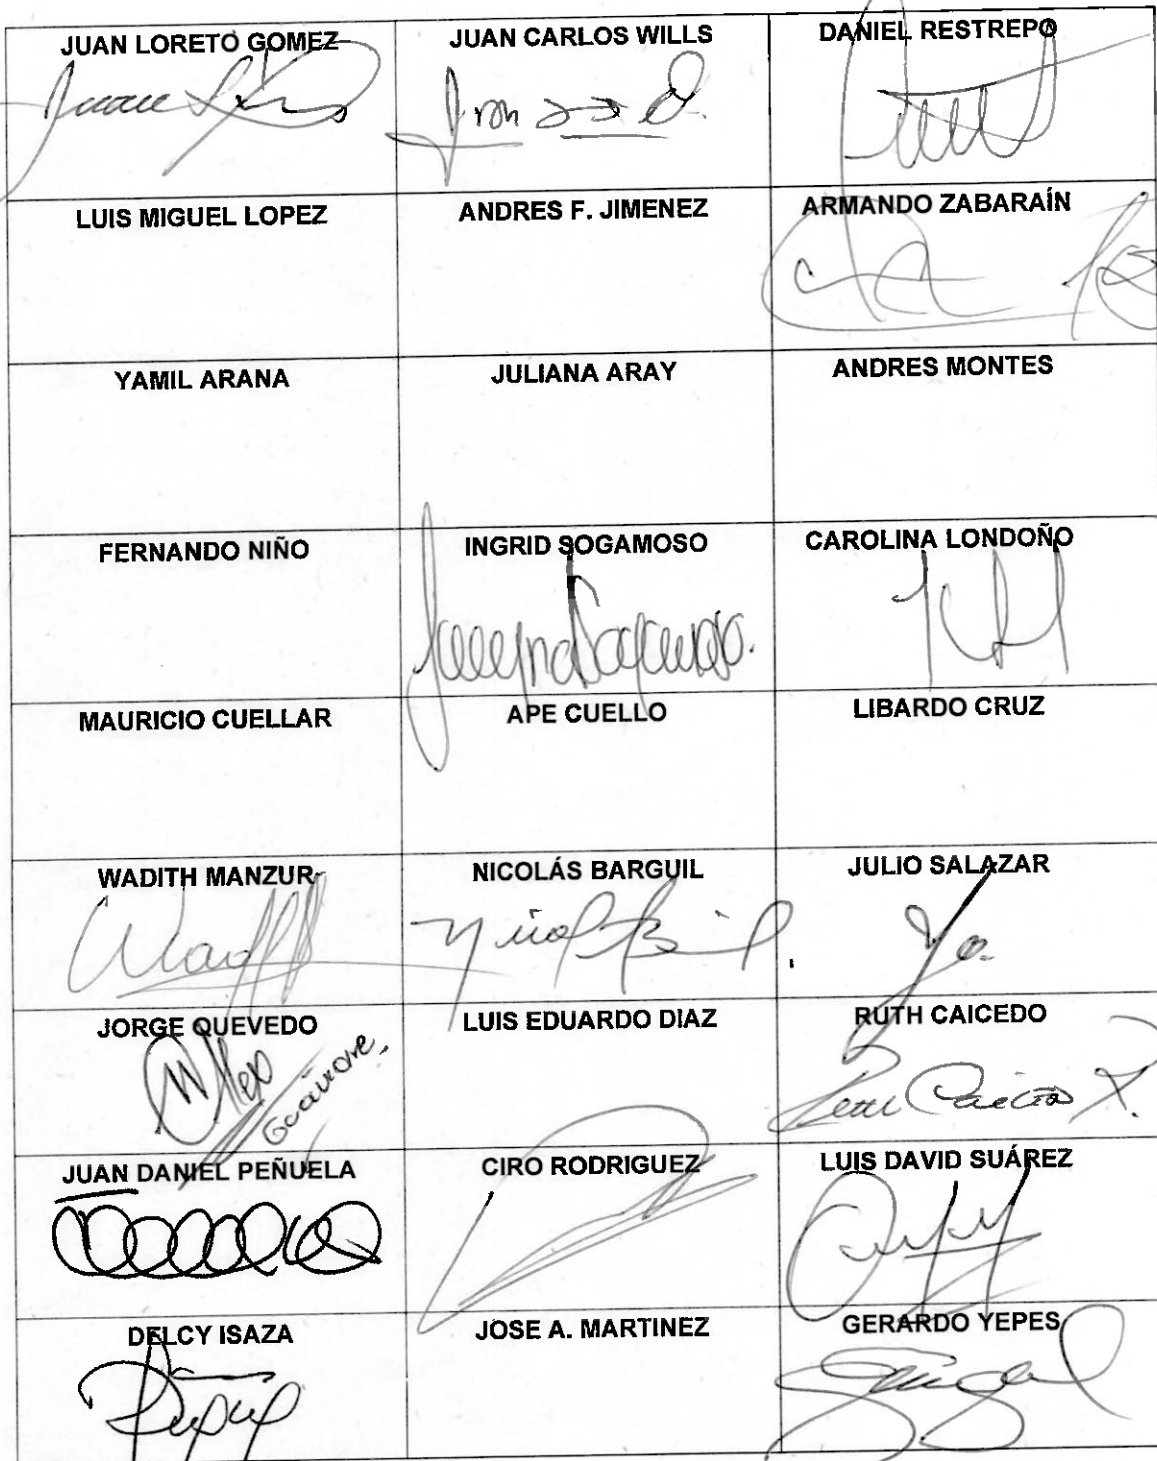 JUAN LORETO GOMEZ
JUAN CARLOS WILLS
DANIEL RESTREPO
LUIS MIGUEL LOPEZ
ANDRES F. JIMENEZ
ARMANDO ZABARAÍN
YAMIL ARANA
JULIANA ARAY
ANDRES MONTES
FERNANDO NIÑO
INGRID SOGAMOSO
CAROLINA LONDOÑO
MAURICIO CUELLAR
APE CUELLO
LIBARDO CRUZ
WADITH MANZUR
NICOLÁS BARGUIL
JULIO SALAZAR
JORGE QUEVEDO
Guaviare
LUIS EDUARDO DIAZ
RUTH CAICEDO
JUAN DANIEL PEÑUELA
CIRO RODRIGUEZ
LUIS DAVID SUÁREZ
DELCY ISAZA
JOSE A. MARTINEZ
GERARDO YEPES